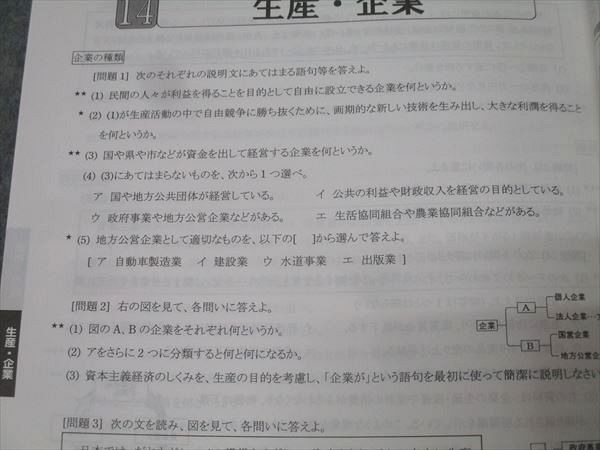 14 生産・企業
企業の種類
[問題1] 次のそれぞれの説明文にあてはまる語句等を答えよ。
★★ (1) 民間の人々が利益を得ることを目的として自由に設立できる企業を何というか。
★ (2) (1)が生産活動の中で自由競争に勝ち抜くために、画期的な新しい技術を生み出し、大きな利潤を得ること
を何というか。
★★ (3) 国や県や市などが資金を出して経営する企業を何というか。
(4) (3)にあてはまらないものを、次から1つ選べ。
ア 国や地方公共団体が経営している。 イ 公共の利益や財政収入を経営の目的としている。
ウ 政府事業や地方公営企業などがある。 エ 生活協同組合や農業協同組合などがある。
★ (5) 地方公営企業として適切なものを、以下の[ ]から選んで答えよ。
[ ア 自動車製造業 イ 建設業 ウ 水道事業 エ 出版業 ]
[問題2] 右の図を見て、各問いに答えよ。
★★ (1) 図のA、Bの企業をそれぞれ何というか。
(2) アをさらに2つに分類すると何と何になるか。
(3) 資本主義経済のしくみを、生産の目的を考慮し、「企業が」という語句を最初に使って簡潔に説明しなさい
企業
A
個人企業
法人企業…ア
B
国営企業
地方公営企
生産・企業
[問題3] 次の文を読み、図を見て、各問いに答えよ。